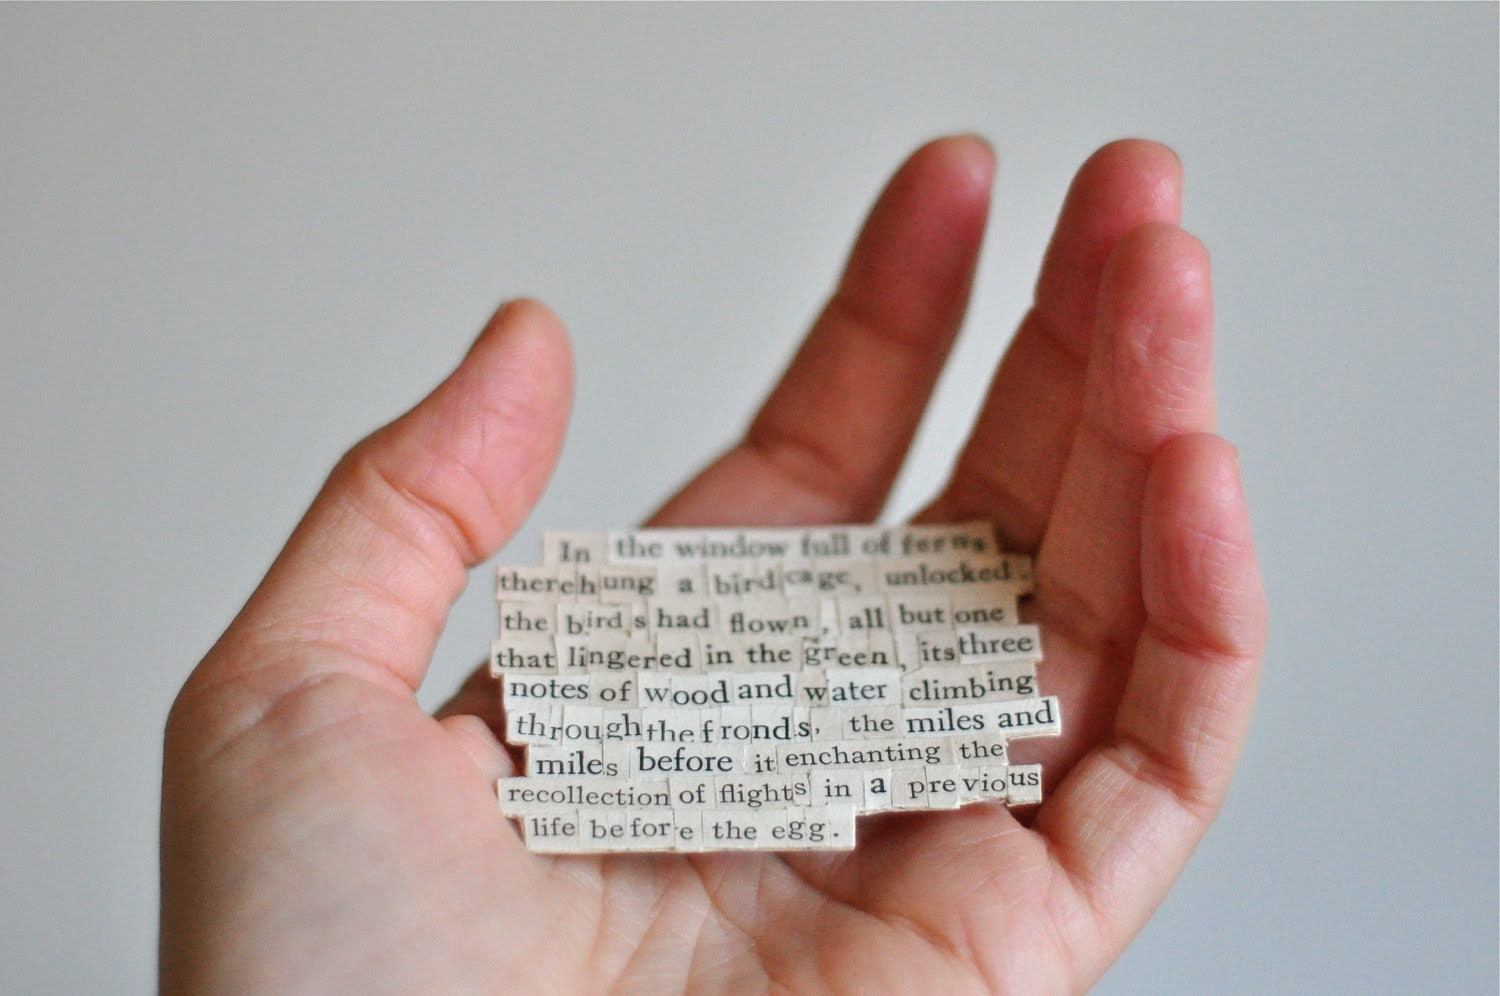 In the window full of ferns
there hung a bird cage, unlocked.
the birds had flown, all but one
that lingered in the green, its three
notes of wood and water climbing
through the fronds, the miles and
miles before it enchanting the
recollection of flights in a previous
life before the egg.